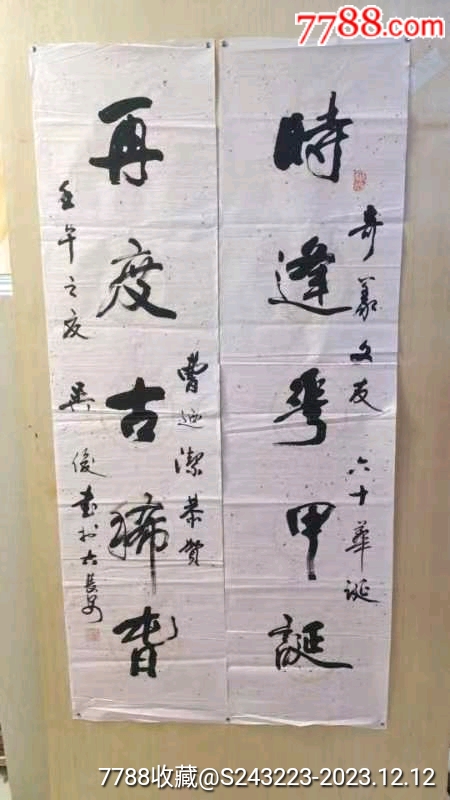 7788.com
時逢華甲誕
奇義文友 六十華誕
再度古稀旾
曹 潔恭賀
壬午之夏 吴俊書於古長安
7788收藏@S243223-2023.12.12